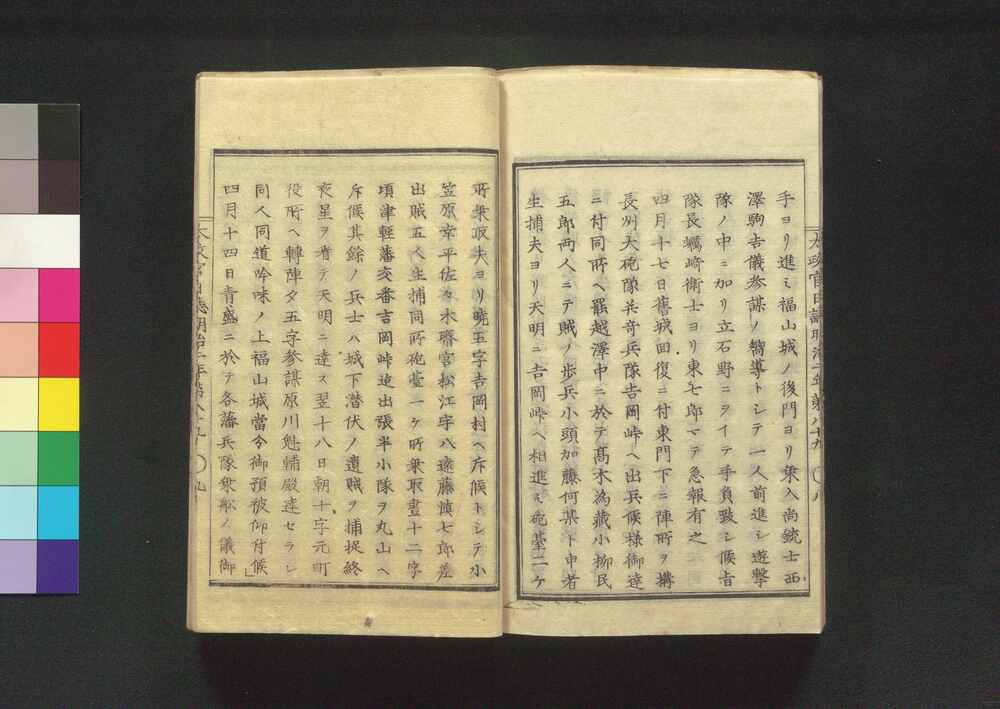 手ヨリ進ミ福山城ノ後門ヨリ乗入尚銃士西
澤駒吉儀参謀ノ嚮導トシテ一人前進シ遊撃
隊ノ中ニ加リ立石野ニヲイテ手負斃シ候旨
隊長蠣崎衛士ヨリ東七郎マテ急報有之
四月十七日舊城回復ニ付東門下ニ陣所ヲ搆
長州大砲隊兵奇兵隊吉岡峠ヘ出兵候様御達
ニ付同所ヘ罷越澤中ニ於テ髙木為藏小栁民
五郎両人ニテ賊ノ歩兵小頭加藤何某ト申者
生捕夫ヨリ天明ニ吉岡峠ヘ相進ミ砲䑓二ケ
太政官日誌明治二年第八十九 〇八
所乗取夫ヨリ曉五字吉岡村ヘ斥候トシテ小
笠原幸平佐々木齊宮松江宇八遠藤慎七郎差
出賊五人生捕同所砲䑓一ケ所乗取晝十二字
頃津輕藩交番吉岡峠迠出張半小隊ヲ丸山ヘ
斥候其餘ノ兵士ハ城下潜伏ノ遺賊ヲ捕捉終
夜星ヲ着テ天明ニ達ス翌十八日朝十字元町
役所ヘ轉陣夕五字参謀原川魁輔殿達セラレ
同人同道吟味ノ上福山城當今御預被仰付候
四月十四日青盛ニ於テ各藩兵隊乗船ノ儀御
太政官日誌明治二年第八十九 〇九